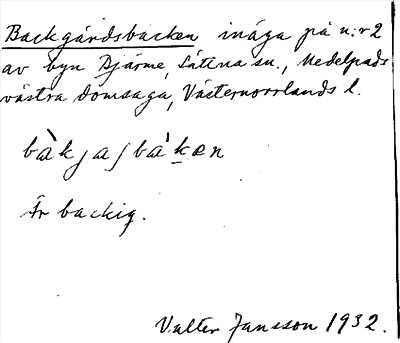 Backgårdsbacken inäga på n:r 2
av byn Djärme, Sättna sn., Medelpads
västra domsaga, Västernorrlands l.
bàkʃaʃbàken
Är backig.
Valter Jansson 1932.